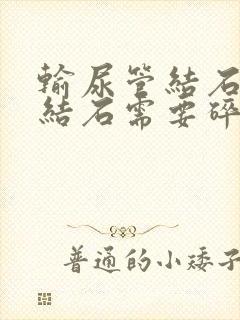 輸尿管結石
結石需要碎
普通的小矮子